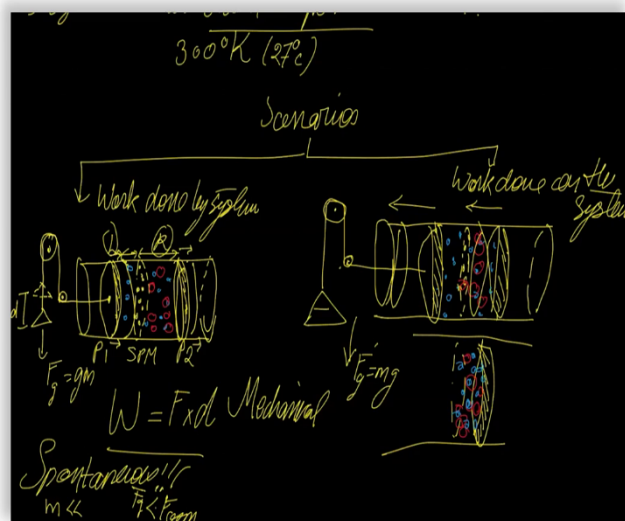 300°K (27°C)
Scenarios
Work done by system
Work done on the
system
P1 SPM P2
Fg=gm
Fg=mg
W = F x d Mechanical
Spontaneous!!!
m<<